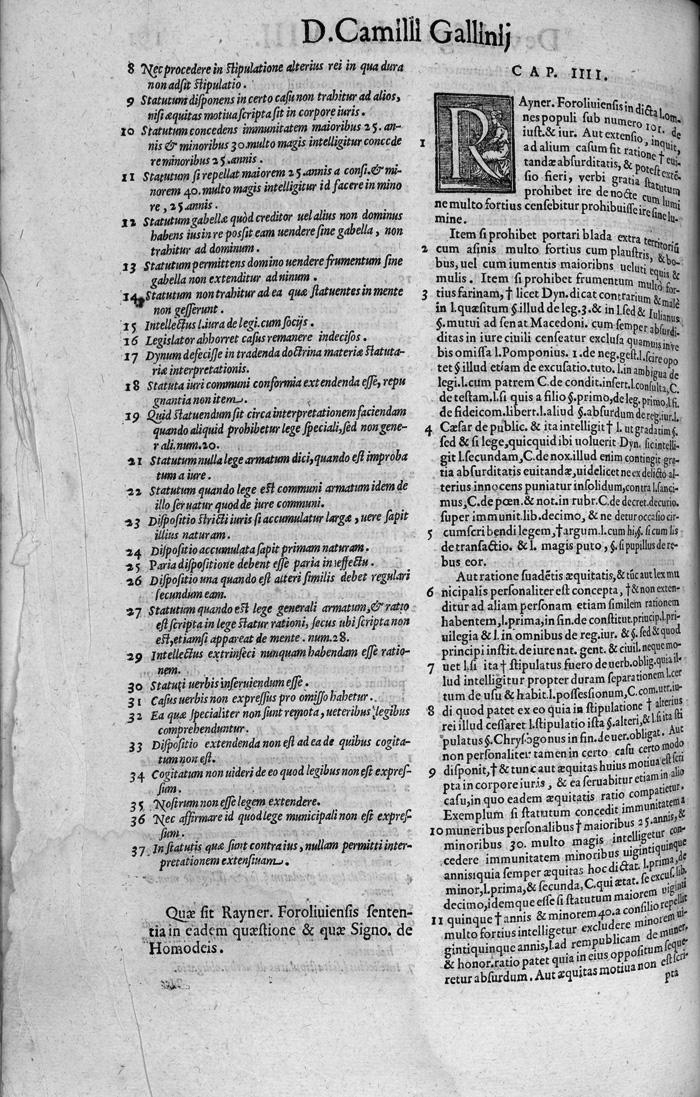 D. Camilli Gallinij
8 Nec procedere in stipulatione alterius rei in qua dura
non adsit stipulatio.
9 Statutum disponens in certo casu non trahitur ad alios,
nisi æquitas motiua scripta sit in corpore iuris.
10 Statutum concedens immunitatem maioribus 25. an-
nis & minoribus 30. multo magis intelligitur concede
re minoribus 25. annis.
11 Statutum si repellat maiorem 25. annis a consi. & mi-
norem 40. multo magis intelligitur id facere in mino
re, 25. annis.
12 Statutum gabellæ quòd creditor uel alius non dominus
habens ius in re possit eam uendere sine gabella, non
trahitur ad dominum.
13 Statutum permittens domino uendere frumentum sine
gabella non extenditur ad ninum.
14 Statutum non trahitur ad ea quæ statuentes in mente
non gesserunt.
15 Intellectus l. iura de legi. cum socijs.
16 Legislator abhorret casus remanere indecisos.
17 Dynum defecisse in tradenda doctrina materiæ statuta-
riæ interpretationis.
18 Statuta iuri communi conformia extendenda esse, repu
gnantia non item.
19 Quid statuendum sit circa interpretationem faciendam
quando aliquid prohibetur lege speciali, sed non gene-
rali. num. 20.
21 Statutum nulla lege armatum dici, quando est improba
tum a iure.
22 Statutum quando lege est communi armatum idem de
illo seruatur quod de iure communi.
23 Dispositio stricti iuris si accumulatur largæ, uere sapit
illius naturam.
24 Dispositio accumulata sapit primam naturam.
25 Paria dispositione debent esse paria in effectu.
26 Dispositio una quando est alteri similis debet regulari
secundum eam.
27 Statutum quando est lege generali armatum, & ratio
est scripta in lege statur rationi, secus ubi scripta non
est, etiamsi appareat de mente. num. 28.
29 Intellectus extrinseci nunquam habendam esse ratio-
nem.
30 Statuti uerbis inseruiendum esse.
31 Casus uerbis non expressus pro omisso habetur.
32 Ea quæ specialiter non sunt remota, ueteribus legibus
comprehenduntur.
33 Dispositio extendenda non est ad ea de quibus cogita-
tum non est.
34 Cogitatum non uideri de eo quod legibus non est expres-
sum.
35 Nostrum non esse legem extendere.
36 Nec affirmare id quod lege municipali non est expres-
sum.
37 In statutis quæ sunt contra ius, nullam permitti inter-
pretationem extensiuam.
Quæ sit Rayner. Foroliuiensis senten-
tia in eadem quæstione & quæ Signo. de
Homodeis.
CAP. IIII.
RAyner. Foroliuiensis in dicta l. om-
nes populi sub numero 101. de
1 iust. & iur. Aut extensio, inquit,
ad alium casum sit ratione † eui
tandæ absurditatis, & potest extē-
sio fieri, verbi gratia statutum
prohibet ire de nocte cum lumi
ne multo fortius censebitur prohibuisse ire sine lu-
mine.
Item si prohibet portari blada extra territoriū
2 cum asinis multo fortius cum plaustris, & bo-
bus, uel cum iumentis maioribns ueluti equis &
mulis. Item si prohibet frumentum multo for-
3 tius farinam, † licet Dyn. dicat contrarium & malè
in l. quæsitum §. illud de leg. 3. & in l. sed & Iulianus
§. mutui ad senat Macedoni. cum semper absurdi-
ditas in iure ciuili censeatur exclusa quamuis in ve
bis omissa l. Pomponius. 1. de neg. gest. l. scire opo
tet § illud etiam de excusatio. tuto. l. in ambigua de
legi. l. cum patrem C. de condit. insert. l. consulta, C.
de testam. l. si quis a filio §. primo, de leg. primo, l. si.
de fideicom. libert. l. aliud §. absurdum de reg. iur. l.
4 Cæsar de public. & ita intelligit † l. ut gradatim §.
sed & si lege, quicquid ibi uoluerit Dyn. sic intelli-
git l. secundam, C. de nox. illud enim contingit gra-
tia absurditatis euitandæ, uidelicet ne ex delicto al-
terius innocens puniatur insolidum, contra l. sanci-
mus, C. de pœn. & not. in rubr. C. de decret. decurio.
super immunit. lib. decimo, & ne detur occasio cir-
5 cumscribendi legem, † argum. l. cum hi §. si cum lis
de transactio. & l. magis puto, §. si pupillus de re-
bus eor.
Aut ratione suadētis æquitatis, & tūc aut lex mu
6 nicipalis personaliter est concepta, † & non exten-
ditur ad aliam personam etiam similem rationem
habentem, l. prima, in fin. de constitut. princip. l. pri-
uilegia & l. in omnibus de reg. iur. & §. sed & quod
principi instit. de iure nat. gent. & ciuil. neque mo-
7 uet l. si ita † stipulatus fuero de uerb. oblig. quia il-
lud intelligitur propter duram separationem l. cer
tum de usu & habit. l. possessionum, C. com. utr. iu-
8 di quod patet ex eo quia in stipulatione † alterius
rei illud cessaret l. stipulatio ista §. alteri, & l. si ita sti
pulatus §. Chrysogonus in fin. de uer. obligat. Aut
non personaliter tamen in certo casu certo modo
9 disponit, † & tunc aut æquitas huius motiua est scri
pta in corpore iuris, & ea seruabitur etiam in alio
casu, in quo eadem æquitatis ratio compatietur.
Exemplum si statutum concedit immunitatem a
10 muneribus personalibus † maioribus 25. annis, &
minoribus 30. multo magis intelligetur con-
cedere immunitatem minoribus uigintiquinque
annis, quia semper æquitas hoc dictat. l. prima, de
minor, l. prima, & secunda, C. qui ætat. se excus. lib.
decimo, idemque esse si statutum maiorem uiginti
11 quinque † annis & minorem 40. a consilio repellit
multo fortius intelligetur excludere minorem ui-
gintiquinque annis, l. ad rempublicam de muner.
& honor. ratio patet quia in eius oppositum seque-
retur absurdum. Aut æquitas motiua non est scri-
pta